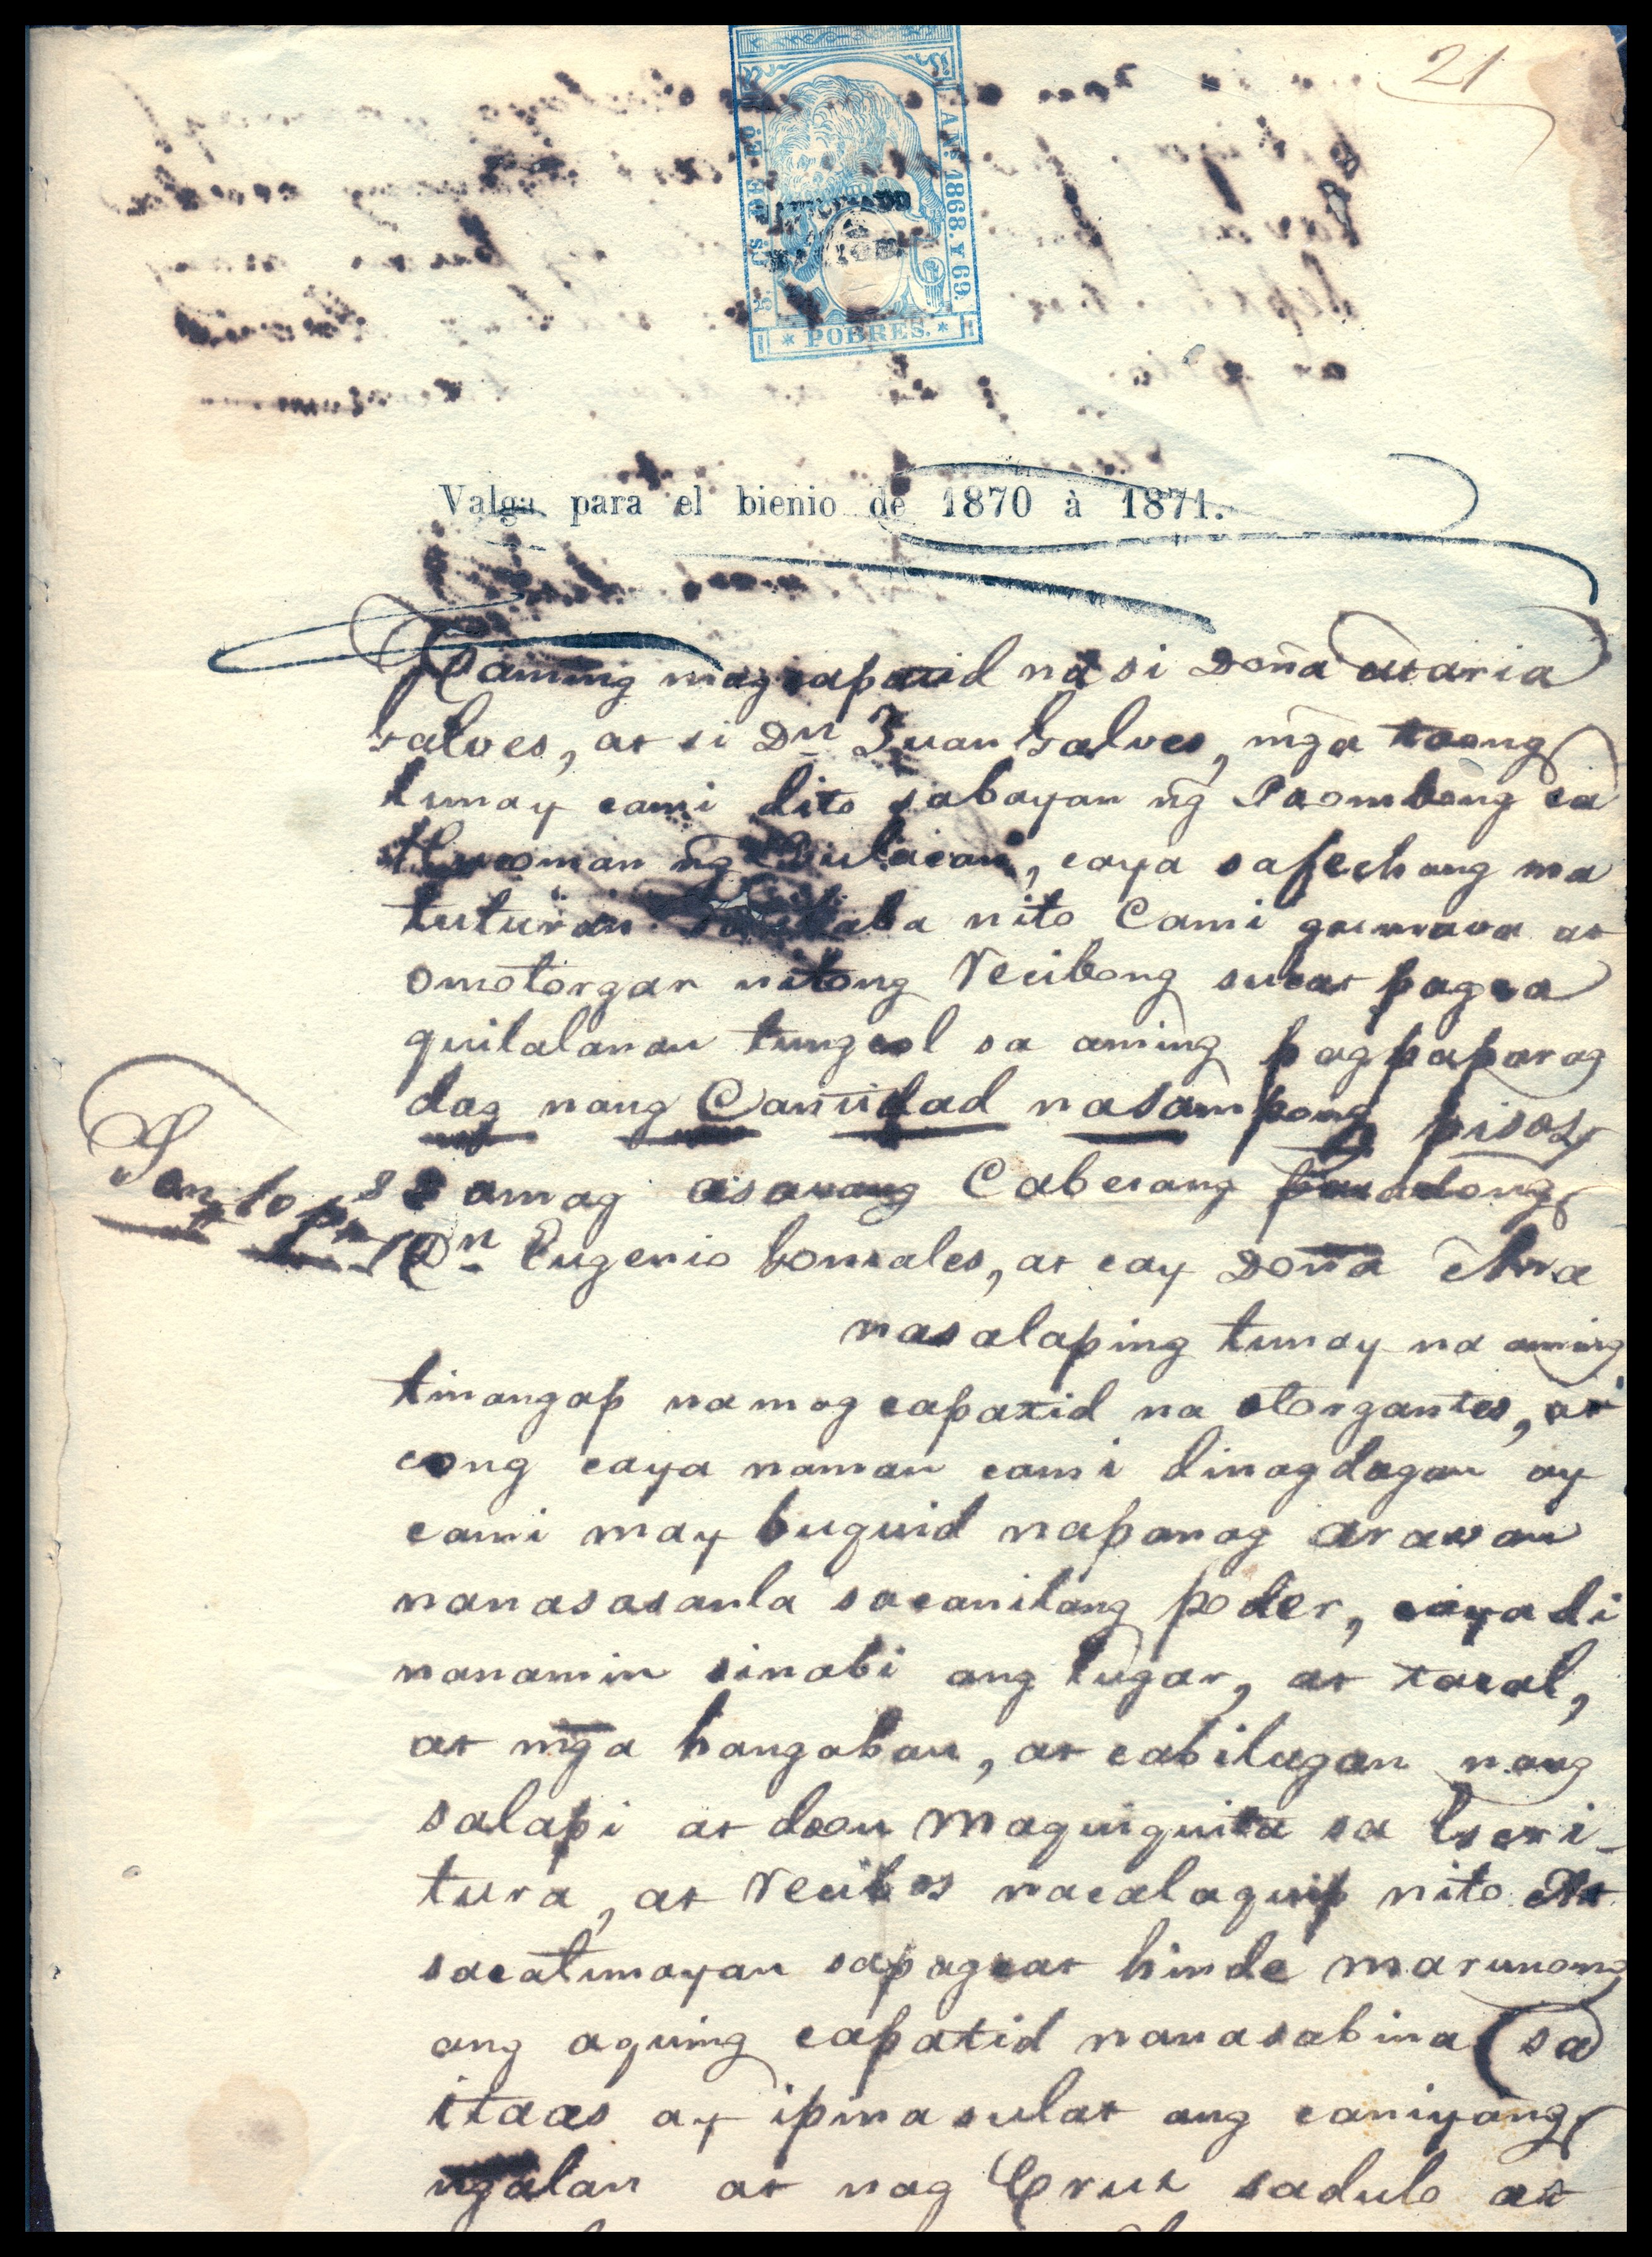 21
S. DE E. DE F.º
AÑº 1868. Y 69.
HABILITADO
* POBRES. *
Valga para el bienio de 1870 à 1871.
Caming magcapatid na si Doña Maria
Galves, at si Dn Juan Galves, mḡa taong
tunay cami dito sabayan nḡ Paombong sa
Hucoman nḡ Bulacan, caya safechang ma
tuturan sa ibaba nito Cami gumava at
omotorgar nitong Recibong sulat pagca
quilalanan tungcol sa aming pagpaparag
dag nang Cantidad nasampong pisos,
Son 10 ps
amag asavang Cabesang
Dn Eugenio Gonzales, at cay Doña Ana
nasalaping tunay na aming
tinangap namag capatid na otorgantes, at
cong caya naman cami dinagdagan ay
cami may buquid napanag arawan
nanasasanla sacanilang poder, caya di
nanamin sinabi ang lugar, at tacal,
at mḡa hangaban, at cabilugan nang
salapi at doon maquiquita sa Escri-
tura, at Recibos nacalaquip nito At
sacatunayan sapagcat hinde marunong
ang aquing capatid nanasabina sa
itaas ay ipinasulat ang caniyang
ngalan at nag Crus sadulo at